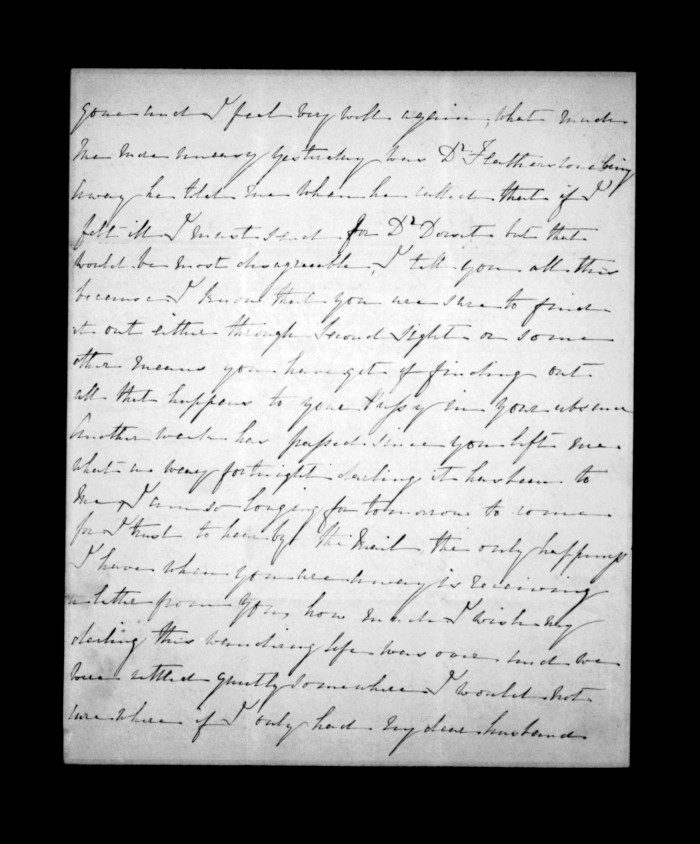 gone and I feel very well again, what made
me more uneasy yesterday was Dr Featherstone being
away he told me when he called that if I
felt ill I must send for Dr Dorset but that
would be most disagreeable, I tell you all this
because I know that you are sure to find
it out either through second sight or some
other means you have got of finding out
all that happens to your Pussy in your absence
Another week has passed since you left me
what a weary fortnight darling it has been to
me, I am so longing for tomorrow to come
for I trust to hear by the Mail, the only happiness
I have when you are away is receiving
a letter from you, how much I wish my
darling this wandering life was over and we
were settled quietly somewhere I would not
care where if I only had my dear husband